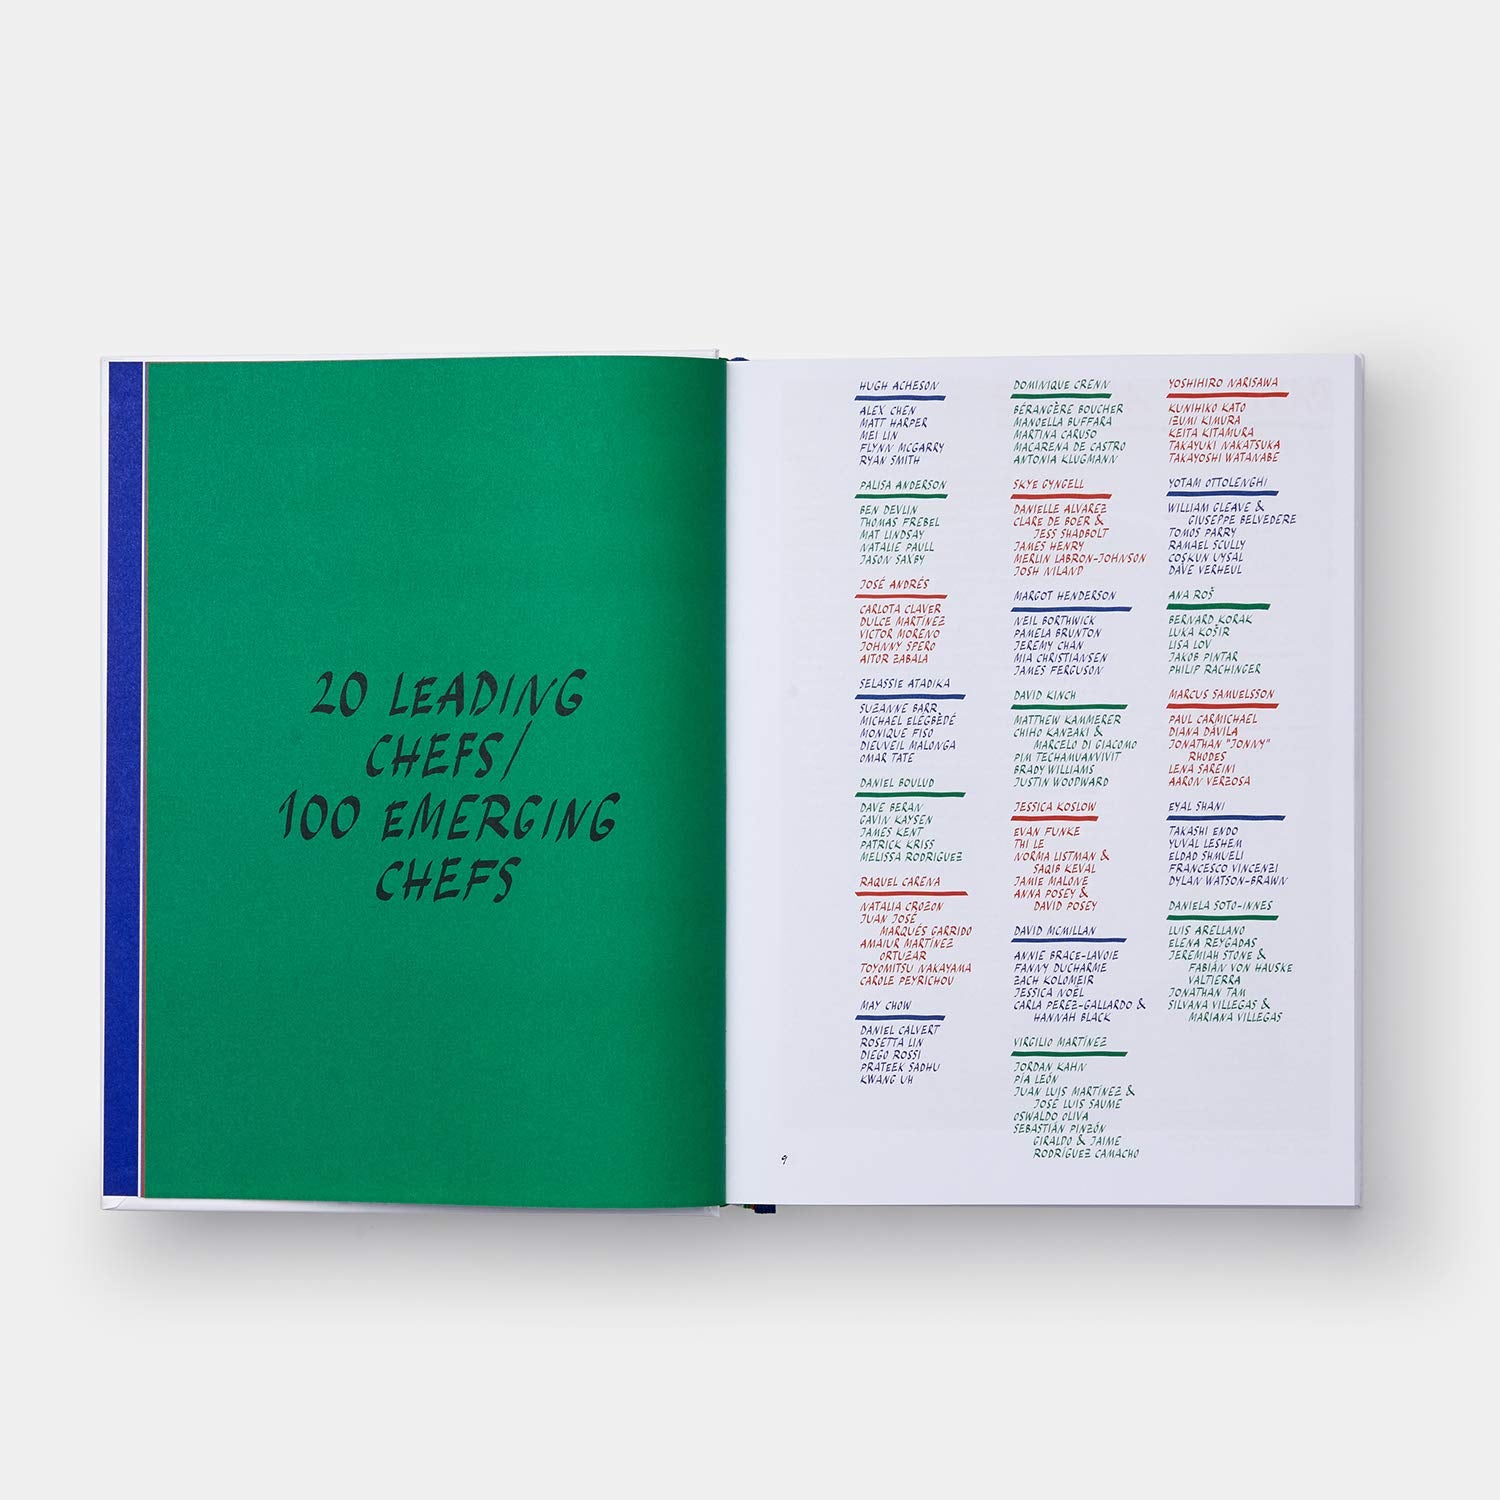 20 LEADING
CHEFS/
100 EMERGING
CHEFS
HUGH ACHESON
ALEX CHEN
MATT HARPER
MEI LIN
FLYNN MCGARRY
RYAN SMITH
PALISA ANDERSON
BEN DEVLIN
THOMAS FREBEL
MAT LINDSAY
NATALIE PAULL
JASON SAXBY
JOSÉ ANDRÉS
CARLOTA CLAVER
DULCE MARTÍNEZ
VICTOR MORENO
JOHNNY SPERO
AITOR ZABALA
SELASSIE ATADIKA
SUZANNE BARR
MICHAEL ELÉGBÈDÉ
MONIQUE FISO
DIEUVEIL MALONGA
OMAR TATE
DANIEL BOULUD
DAVE BERAN
GAVIN KAYSEN
JAMES KENT
PATRICK KRISS
MELISSA RODRIGUEZ
RAQUEL CARENA
NATALIA CROZON
JUAN JOSÉ
MARQUÉS GARRIDO
AMAIUR MARTÍNEZ
ORTUZAR
TOYOMITSU NAKAYAMA
CAROLE PEYRICHOU
MAY CHOW
DANIEL CALVERT
ROSETTA LIN
DIEGO ROSSI
PRATEEK SADHU
KWANG UH
DOMINIQUE CRENN
BÉRANGÈRE BOUCHER
MANOELLA BUFFARA
MARTINA CARUSO
MACARENA DE CASTRO
ANTONIA KLUGMANN
SKYE GYNGELL
DANIELLE ALVAREZ
CLARE DE BOER &
JESS SHADBOLT
JAMES HENRY
MERLIN LABRON-JOHNSON
JOSH NILAND
MARGOT HENDERSON
NEIL BORTHWICK
PAMELA BRUNTON
JEREMY CHAN
MIA CHRISTIANSEN
JAMES FERGUSON
DAVID KINCH
MATTHEW KAMMERER
CHIHO KANZAKI &
MARCELO DI GIACOMO
PIM TECHAMUANVIVIT
BRADY WILLIAMS
JUSTIN WOODWARD
JESSICA KOSLOW
EVAN FUNKE
THI LE
NORMA LISTMAN &
SAQIB KEVAL
JAMIE MALONE
ANNA POSEY &
DAVID POSEY
DAVID MCMILLAN
ANNIE BRACE-LAVOIE
FANNY DUCHARME
ZACH KOLOMEIR
JESSICA NOËL
CARLA PEREZ-GALLARDO &
HANNAH BLACK
VIRGILIO MARTÍNEZ
JORDAN KAHN
PÍA LEÓN
JUAN LUIS MARTÍNEZ &
JOSÉ LUIS SAUME
OSWALDO OLIVA
SEBASTIÁN PINZÓN
GIRALDO & JAIME
RODRÍGUEZ CAMACHO
YOSHIHIRO NARISAWA
KUNIHIKO KATO
IZUMI KIMURA
KEITA KITAMURA
TAKAYUKI NAKATSUKA
TAKAYOSHI WATANABE
YOTAM OTTOLENGHI
WILLIAM GLEAVE &
GIUSEPPE BELVEDERE
TOMOS PARRY
RAMAEL SCULLY
COSKUN UYSAL
DAVE VERHEUL
ANA ROŠ
BERNARD KORAK
LUKA KOŠIR
LISA LOV
JAKOB PINTAR
PHILIP RACHINGER
MARCUS SAMUELSSON
PAUL CARMICHAEL
DIANA DÁVILA
JONATHAN "JONNY"
RHODES
LENA SAREINI
AARON VERZOSA
EYAL SHANI
TAKASHI ENDO
YUVAL LESHEM
ELDAD SHMUELI
FRANCESCO VINCENZI
DYLAN WATSON-BRAWN
DANIELA SOTO-INNES
LUIS ARELLANO
ELENA REYGADAS
JEREMIAH STONE &
FABIÁN VON HAUSKE
VALTIERRA
JONATHAN TAM
SILVANA VILLEGAS &
MARIANA VILLEGAS
9